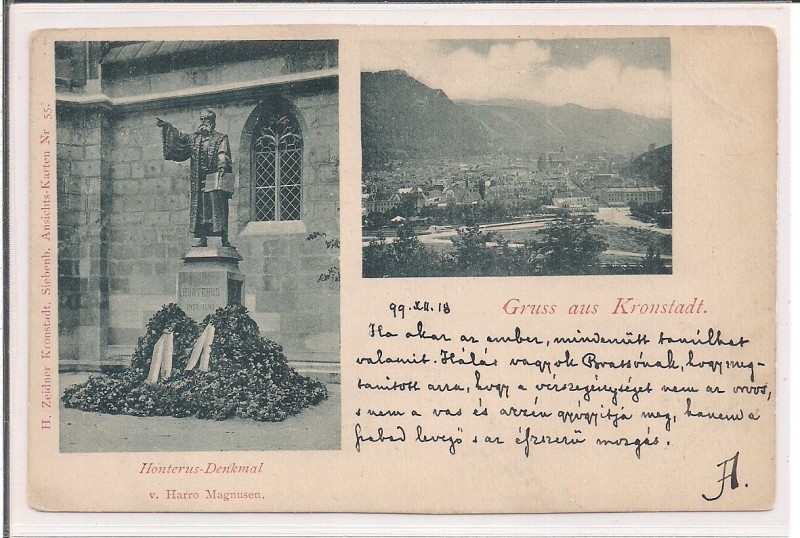 H. Zeidner Kronstadt. Siebenb. Ansichts-Karten Nr 55.
HONTERUS
Honterus-Denkmal
v. Harro Magnusen.
Gruss aus Kronstadt.
99. XII. 18
Ha akar az ember, mindenütt tanúlhat
valamit. Hálás vagyok Brassónak, hogy meg-
tanitott arra, hogy a vérszegénységet nem az orvos,
s nem a vas és arzén gyógyitja meg, hanem a
szabad levegő s az észszerű mozgás.
A.